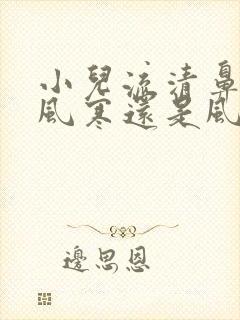 小兒流清鼻
風寒還是風
邊思恩